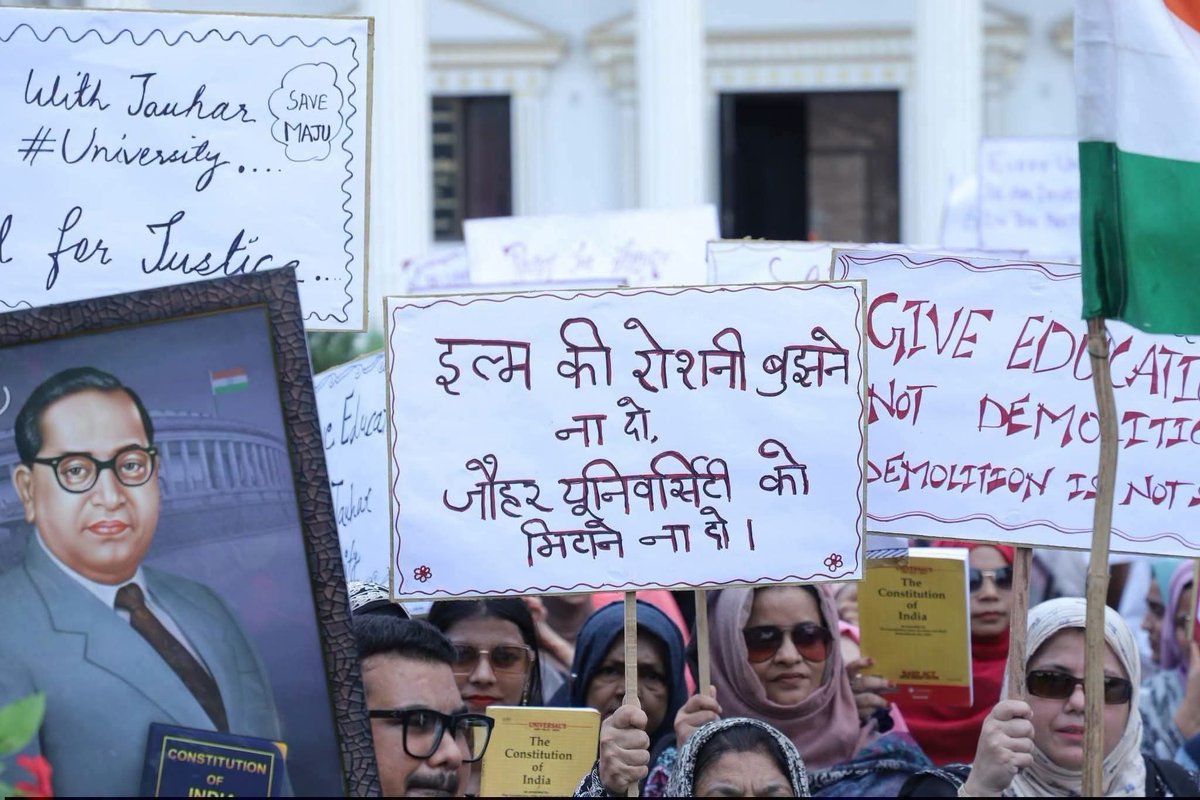 With Jauhar
#University....
SAVE
MAJU
for Justice...
इल्म की रोशनी बुझने
ना दो,
जौहर यूनिवर्सिटी को
मिटाने ना दो।
GIVE EDUCATI
NOT DEMOLITIO
DEMOLITION IS NOT
Educa
Jauhar
CONSTITUTION
OF
INDIA
UNIVERSAL'S
The
Constitution
of
India
The
Constitution
of
India
BARE ACT